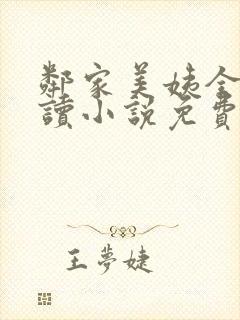 鄰家美姨全
讀小說免費
王夢婕